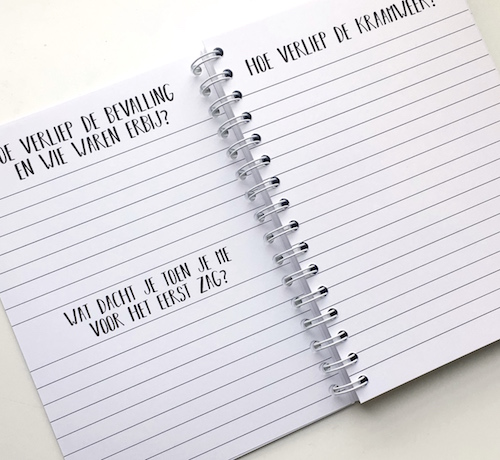 OE VERLIEP DE BEVALLING
EN WIE WAREN ERBIJ?
WAT DACHT JE TOEN JE ME
VOOR HET EERST ZAG?
HOE VERLIEP DE KRAAMWEEK?